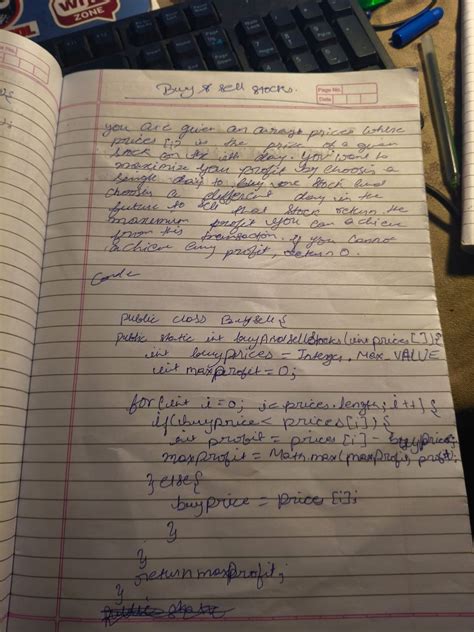 WIZ
ZONE
Buy & sell stocks.
Page No.
Date
you are given an array prices where
prices [i] is the price of a given
stock on the ith day. You want to
maximize your profit by choosing a
single day to buy one stock and
choosing a different day in the
future to sell that stock return the
maximum profit you can achieve
from this transaction. if you cannot
achieve any profit, return 0.
Code
public class Buysell {
public static int buyAndSellStocks (int prices []) {
int buyprices = Integer. Max_VALUE
int maxprofit = 0;
for (int i=0; i< prices.length; i++) {
if (buyprice < prices [i]) {
int profit = prices [i] - buyprice;
maxprofit = Math.max (maxprofit, profit);
} else {
buyprice = price [i];
}
}
return maxprofit;
}